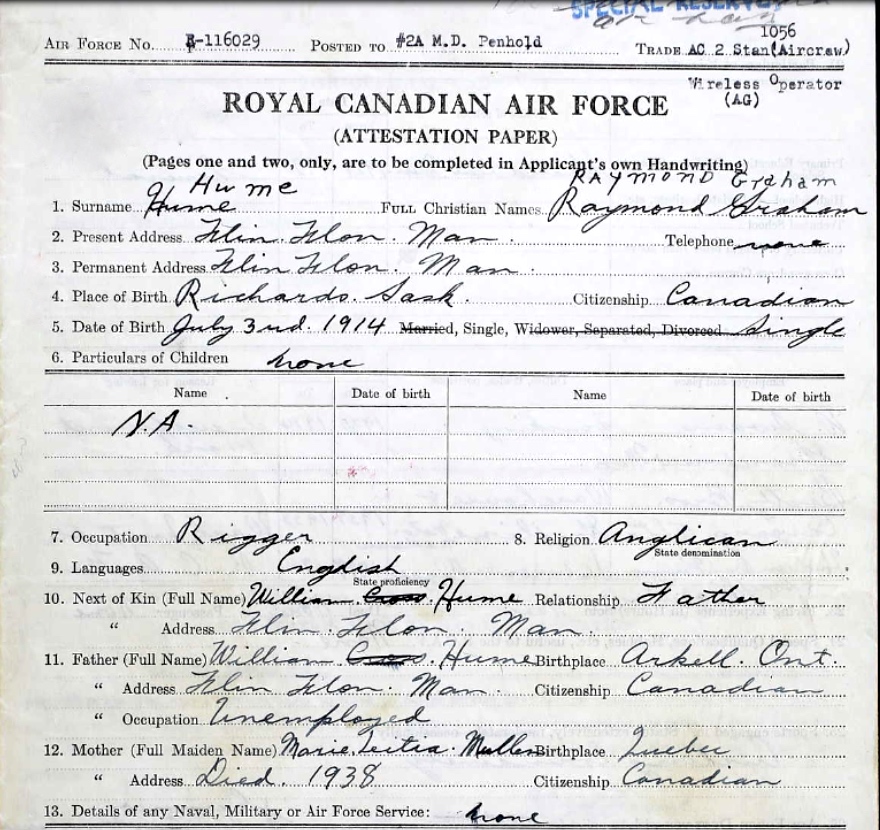 SPECIAL RESERVE
1056
AIR FORCE No. R-116029 POSTED TO #2A M.D. Penhold TRADE AC 2 Stan(Aircrew)
Wireless Operator
(AG)
ROYAL CANADIAN AIR FORCE
(ATTESTATION PAPER)
(Pages one and two, only, are to be completed in Applicant's own Handwriting)
Hume RAYMOND Graham
1. Surname Hume FULL Christian Names Raymond Graham
2. Present Address Flin Flon. Man. Telephone none
3. Permanent Address Flin Flon. Man.
4. Place of Birth Richards. Sask. Citizenship Canadian
5. Date of Birth July 3rd. 1914 Married, Single, Widower, Separated, Divorced Single
6. Particulars of Children none
Name Date of birth Name Date of birth
N.A.
7. Occupation Rigger 8. Religion Anglican
State denomination
9. Languages English
State proficiency
10. Next of Kin (Full Name) William Hume Relationship Father
" Address Flin Flon. Man.
11. Father (Full Name) William Hume Birthplace Arkell. Ont.
" Address Flin Flon. Man. Citizenship Canadian
" Occupation Unemployed
12. Mother (Full Maiden Name) Marie Birthplace Quebec
" Address Died. 1938 Citizenship Canadian
13. Details of any Naval, Military or Air Force Service: none